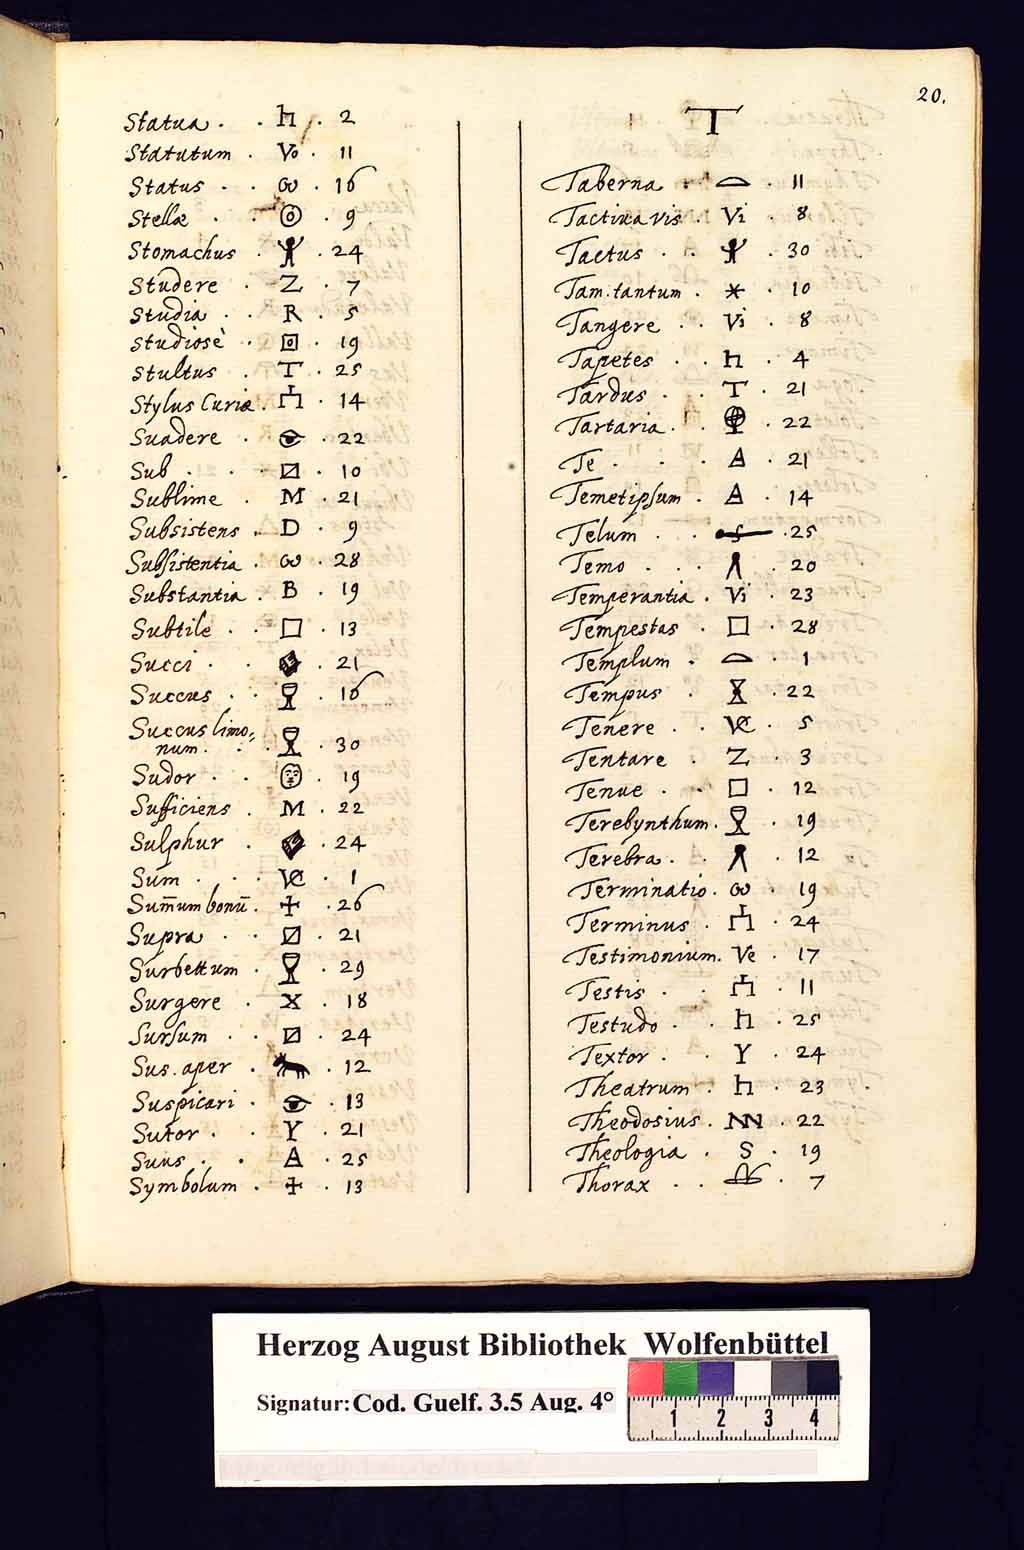 20.
Statua . . h . 2
Statutum . Vo . 11
Status . . ω . 16
Stellæ . . ☉ . 9
Stomachus . . 24
Studere . Z . 7
Studia . . R . 5
Studiosè . . 19
Stultus . T . 25
Stylus Curiæ . . 14
Suadere . . 22
Sub . . . . 10
Sublime . M . 21
Subsistens . D . 9
Subsistentia . ω . 28
Substantia . B . 19
Subtile . . □ . 13
Succi . . . 21
Succus . . . 16
Succus limo,,
num . . . . 30
Sudor . . . 19
Sufficiens . M . 22
Sulphur . . 24
Sum . . . . 1
Sum̄um bonū . + . 26
Supra . . . 21
Surbettum . . 29
Surgere . X . 18
Sursum . . . 24
Sus . aper . . 12
Suspicari . . 13
Sutor . . Y . 21
Suus . . A . 25
Symbolum . + . 13
T
Taberna . . . 11
Tactiva vis . Vi . 8
Tactus . . . 30
Tam . tantum . * . 10
Tangere . . Vi . 8
Tapetes . . h . 4
Tardus . . T . 21
Tartaria . . . 22
Te . . . A . 21
Temetipsum . A . 14
Telum . . . 25
Temo . . . . 20
Temperantia . Vi . 23
Tempestas . □ . 28
Templum . . 1
Tempus . . . 22
Tenere . . . 5
Tentare . Z . 3
Tenue . . □ . 12
Terebynthum . . 19
Terebra . . . 12
Terminatio . ω . 19
Terminus . . 24
Testimonium . Ve . 17
Testis . . . 11
Testudo . . h . 25
Textor . . Y . 24
Theatrum . h . 23
Theodosius . . 22
Theologia . S . 19
Thorax . . . 7
Herzog August Bibliothek Wolfenbüttel
Signatur: Cod. Guelf. 3.5 Aug. 4°
1 2 3 4